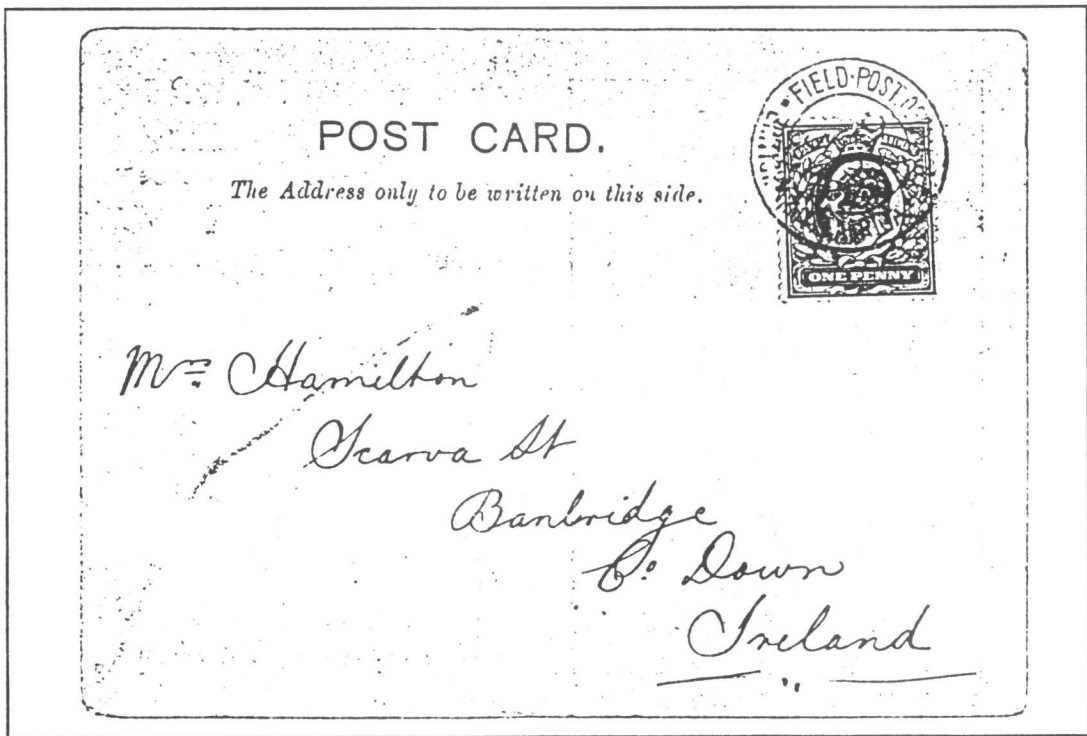 FIELD·POST
POST CARD.
The Address only to be written on this side.
ONE PENNY
Mrs Hamilton
Scarva St
Banbridge
Co. Down
Ireland